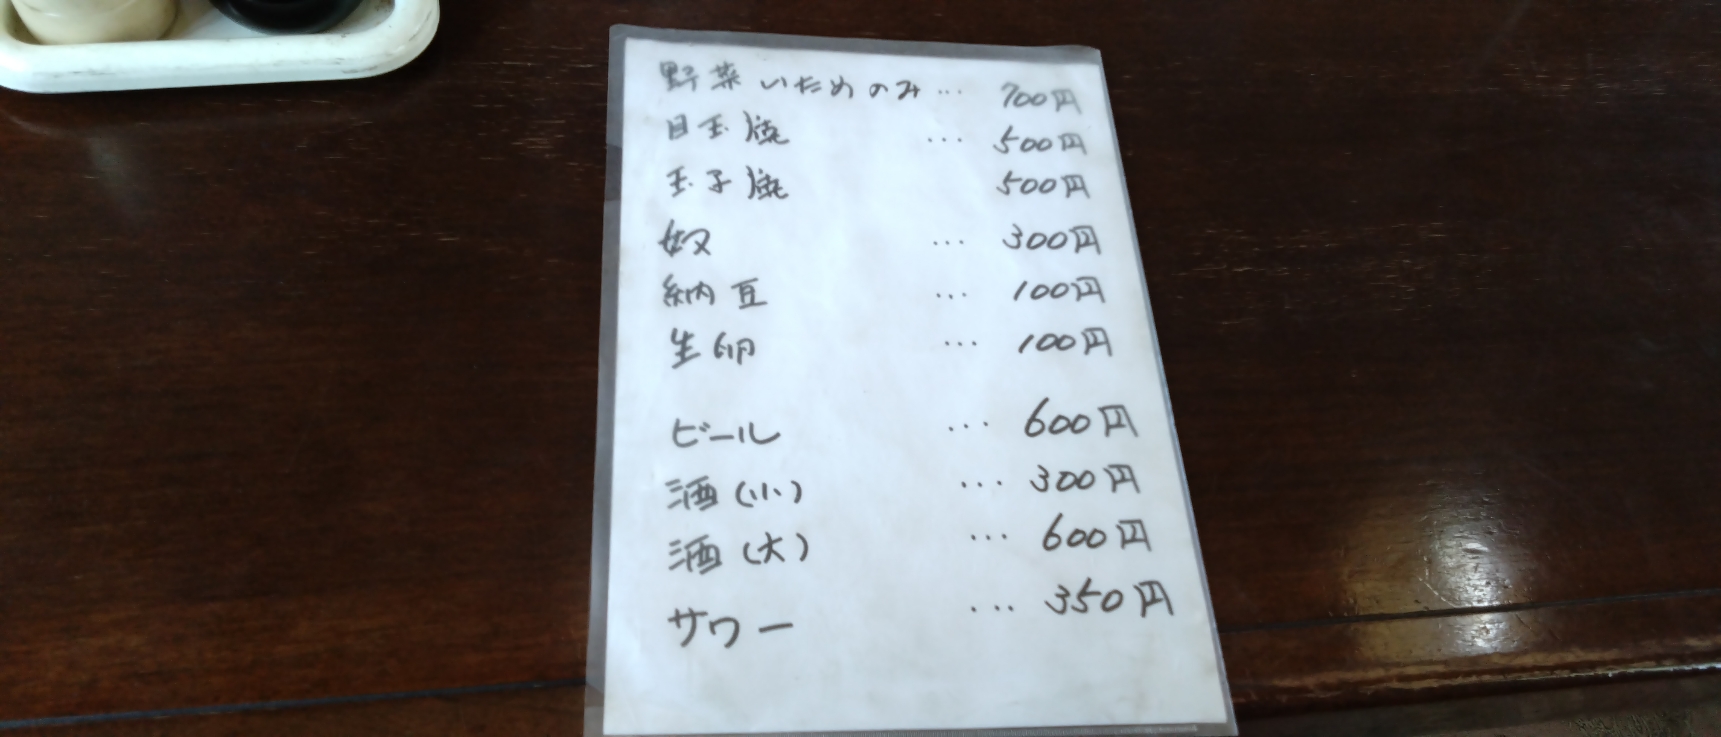 野菜いためのみ … 700円
目玉焼 … 500円
玉子焼 500円
奴 … 300円
納豆 … 100円
生卵 … 100円
ビール … 600円
酒(小) … 300円
酒(大) … 600円
サワー … 350円